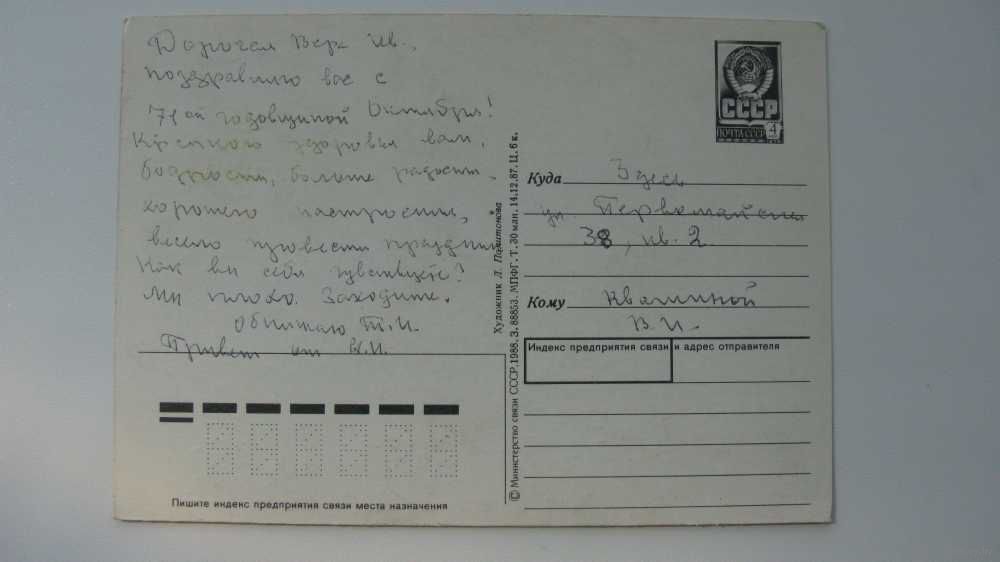 Дорогая Вера Ив.,
поздравляю вас с
71ой годовщиной Октября!
Крепкого здоровья вам,
бодрости, больше радости,
хорошего настроения,
весело провести праздник
Как вы себя чувствуете?
Мы плохо. Заходите.
Обнимаю Т.И.
Привет от
СССР
ПОЧТА СССР 4
Куда Здесь
ул. Первомайская
38, кв. 2.
Кому
В.И.
Индекс предприятия связи и адрес отправителя
Художник Л. Паритонова
© Министерство связи СССР. 1988. З. 88853. МПФГ. Т. 30 мли. 14.12.87. Ц. 6 к.
Пишите индекс предприятия связи места назначения